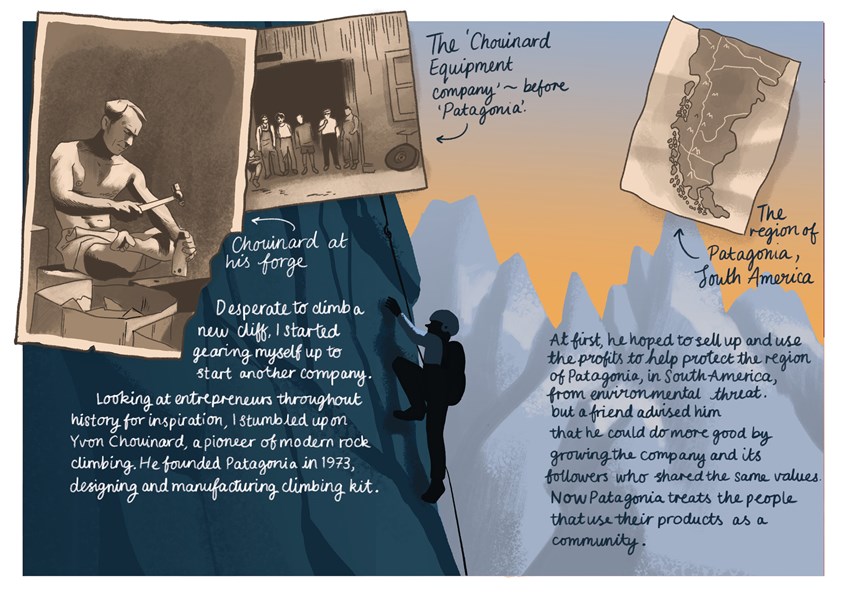 The 'Chouinard
Equipment
company' ~ before
'Patagonia'.
The
region of
Patagonia,
South America
Chouinard at
his forge
Desperate to climb a
new cliff, I started
gearing myself up to
start another company.
Looking at entrepreneurs throughout
history for inspiration, I stumbled upon
Yvon Chouinard, a pioneer of modern rock
climbing. He founded Patagonia in 1973,
designing and manufacturing climbing kit.
At first, he hoped to sell up and use
the profits to help protect the region
of Patagonia, in South America,
from environmental threat.
but a friend advised him
that he could do more good by
growing the company and its
followers who shared the same values.
Now Patagonia treats the people
that use their products as a
community.